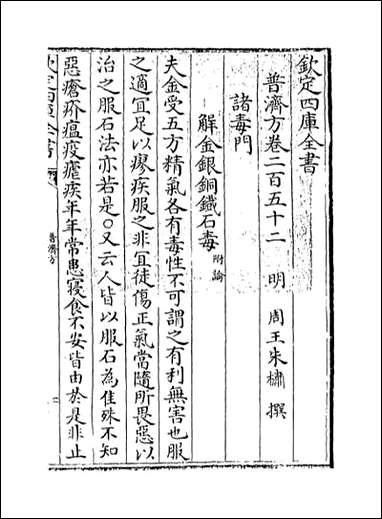 欽定四庫全書
普濟方卷二百五十二　明　周王朱橚　撰
諸毒門
解金銀銅鐵石毒附論
夫金受五方精氣各有毒性不可謂之有利無害也服
之適宜足以瘳疾服之非宜徒傷正氣當隨所畏惡以
治之服石法亦若是○又云人皆以服石為佳殊不知
惡瘡疥瘟疫瘧疾年年常患寢食不安皆由於是非止
普濟方